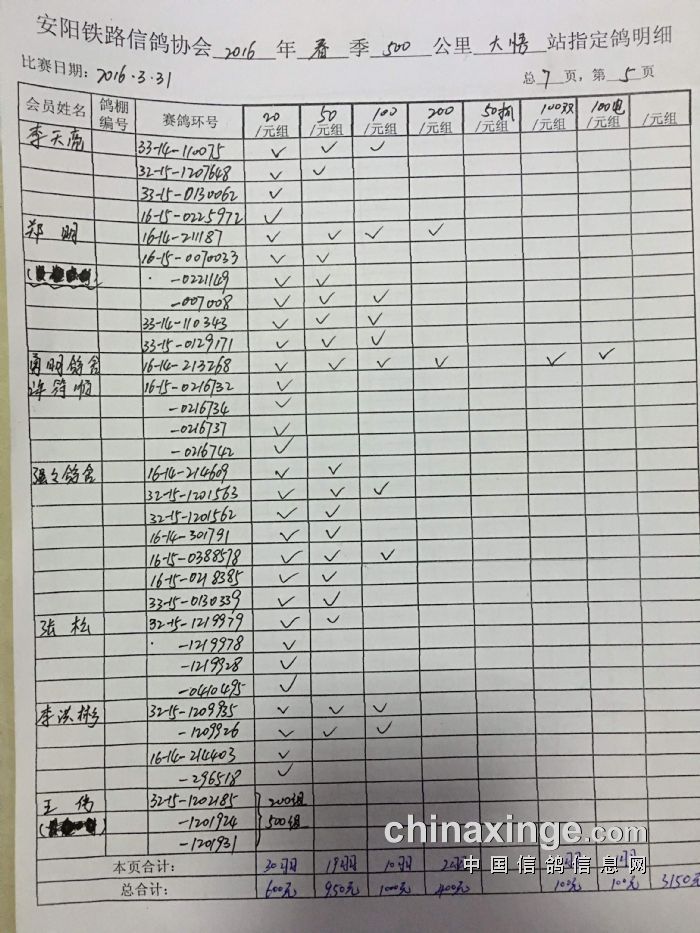 安阳铁路信鸽协会 2016 年 春 季 500 公里 大悟 站指定鸽明细
比赛日期: 2016.3.31 总 7 页, 第 5 页
会员姓名 鸽棚编号 赛鸽环号 20/元组 50/元组 100/元组 200/元组 50抓/元组 100双/元组 100电/元组 /元组
李天亮 33-14-110075 ✓ ✓ ✓
32-15-1207648 ✓ ✓
33-15-0130062 ✓
16-15-0225972 ✓
郑明 16-14-211187 ✓ ✓ ✓ ✓
16-15-0070033 ✓ ✓
-0221149 ✓ ✓
-007008 ✓ ✓ ✓
33-14-110343 ✓ ✓ ✓
33-15-0129171 ✓ ✓ ✓
勇明鸽舍 16-14-213268 ✓ ✓ ✓ ✓ ✓ ✓
16-15-0216732 ✓
-0216734 ✓
-0216737 ✓
-0216742 ✓
强之鸽舍 16-14-214609 ✓ ✓
32-15-1201563 ✓ ✓ ✓
32-15-1201562 ✓ ✓
16-14-301791 ✓ ✓
16-15-0388578 ✓ ✓ ✓
16-15-0218385 ✓ ✓
33-15-0130339 ✓ ✓
张松 32-15-1219979 ✓ ✓
-1219978 ✓
-1219928 ✓
-0410495 ✓
李洪彬 32-15-1209935 ✓ ✓ ✓
-1209926 ✓ ✓ ✓
16-14-214403 ✓
-296518 ✓
王伟 32-15-1202185 200组
-1201924 500组
-1201931
chinaxinge.com
中国信鸽信息网
本页合计: 30羽 19羽 10羽
总合计: 600元 950元 1000元 400元 100元 100元 3150元